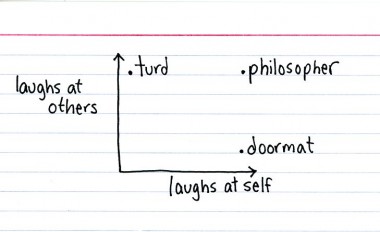 turd
philosopher
laughs at
others
doormat
laughs at self